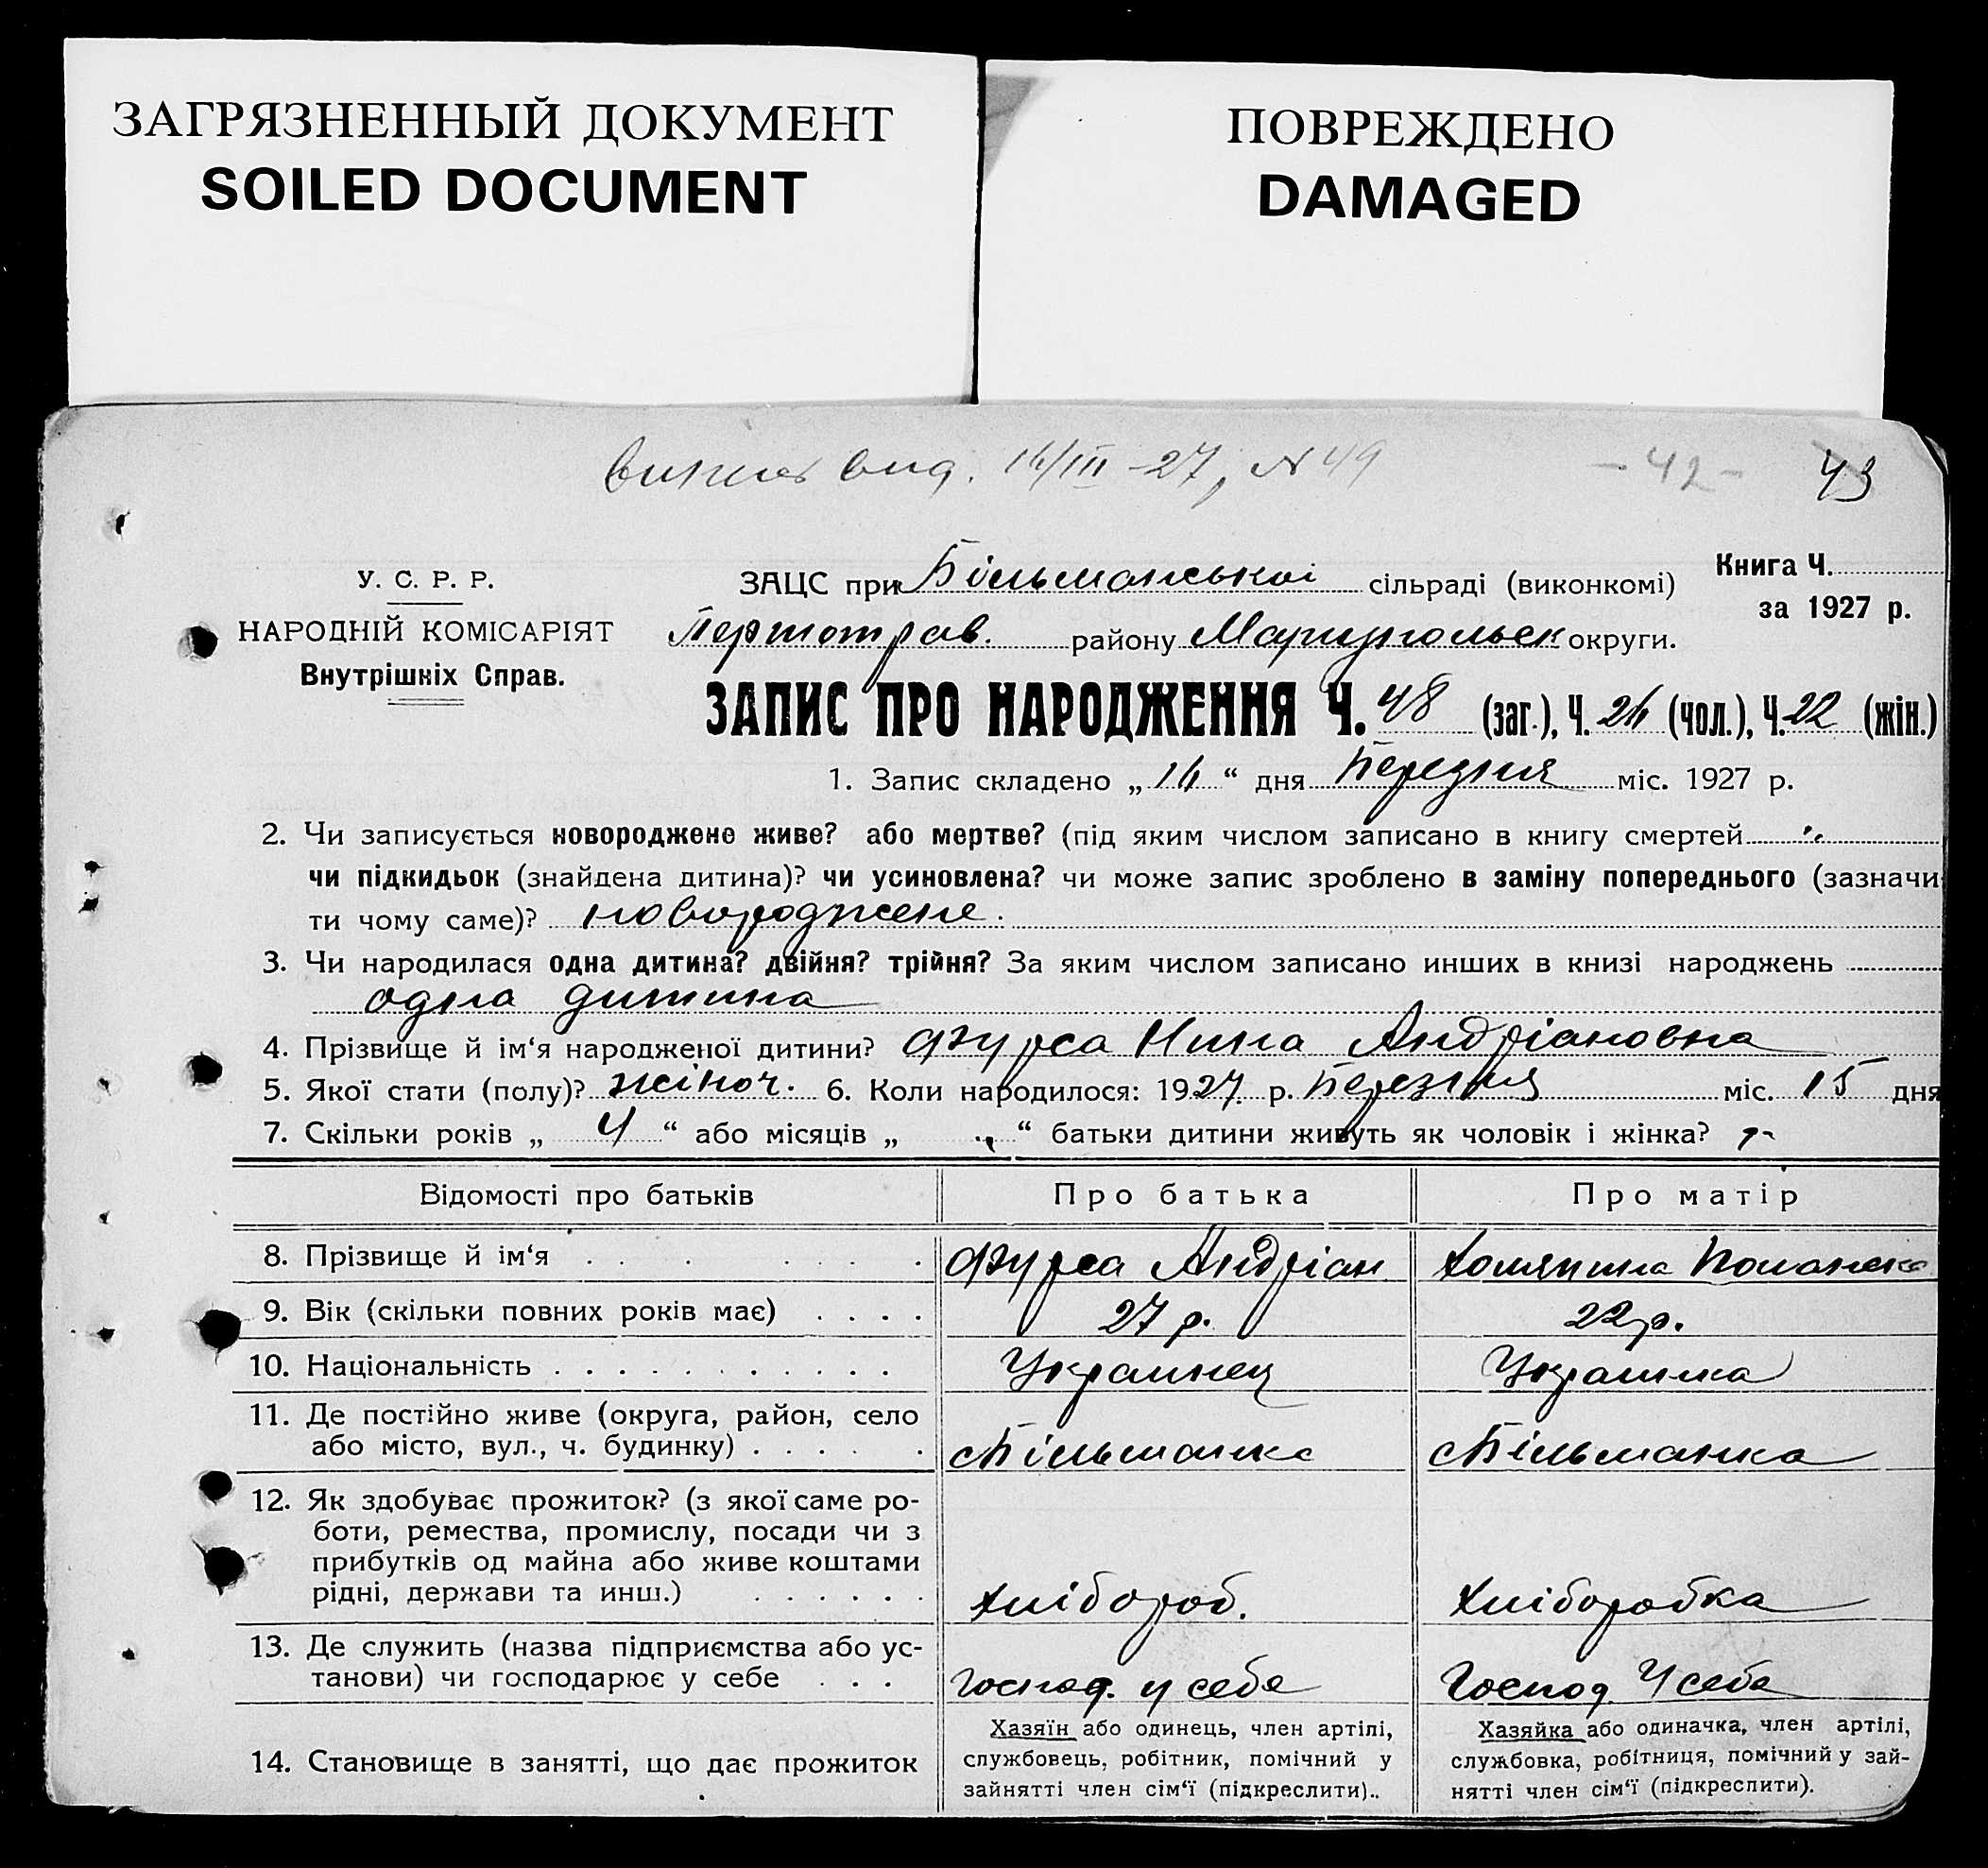 ЗАГРЯЗНЕННЫЙ ДОКУМЕНТ
SOILED DOCUMENT
ПОВРЕЖДЕНО
DAMAGED
вид. 16/III -27, N 49
- 42 - 43
У. С. Р. Р.
НАРОДНІЙ КОМІСАРІЯТ
Внутрішніх Справ.
ЗАЦС при Більманській сільраді (виконкомі)
Книга Ч.
за 1927 р.
району Маріупольск округи.
ЗАПИС ПРО НАРОДЖЕННЯ Ч. 48 (заг.), Ч. 26 (чол.), Ч. 22 (жін.)
1. Запис складено „ 16 “ дня Березня міс. 1927 р.
2. Чи записується новороджене живе? або мертве? (під яким числом записано в книгу смертей
чи підкидьок (знайдена дитина)? чи усиновлена? чи може запис зроблено в заміну попереднього (зазначи
ти чому саме)? новороджене.
3. Чи народилася одна дитина? двійня? трійня? За яким числом записано инших в книзі народжень
одна дитина
4. Прізвище й ім‘я народженої дитини? Фурса Нина Андріановна
5. Якої стати (полу)? жіноч. 6. Коли народилося: 1927 р. Березня міс. 15 дня
7. Скільки років „ 4 “ або місяців „ “ батьки дитини живуть як чоловік і жінка?
Відомості про батьків
Про батька
Про матір
8. Прізвище й ім‘я . . . . . . .
Фурса Андріан
9. Вік (скільки повних років має) . . . .
27 р.
22 р.
10. Національність . . . . . . . . . . .
Украинец
Украинка
11. Де постійно живе (округа, район, село
або місто, вул., ч. будинку) . . . . . .
Більманка
Більманка
12. Як здобуває прожиток? (з якої саме ро-
боти, ремества, промислу, посади чи з
прибутків од майна або живе коштами
рідні, держави та инш.) . . . . . .
Хлібороб.
Хліборобка
13. Де служить (назва підприємства або ус-
танови) чи господарює у себе . . .
Господ. у себе
Господ. У себе
14. Становище в занятті, що дає прожиток
Хазяїн або одинець, член артілі,
службовець, робітник, помічний у
зайнятті член сім‘ї (підкреслити)..
Хазяйка або одиначка, член артілі,
службовка, робітниця, помічний у зай-
нятті член сім‘ї (підкреслити).